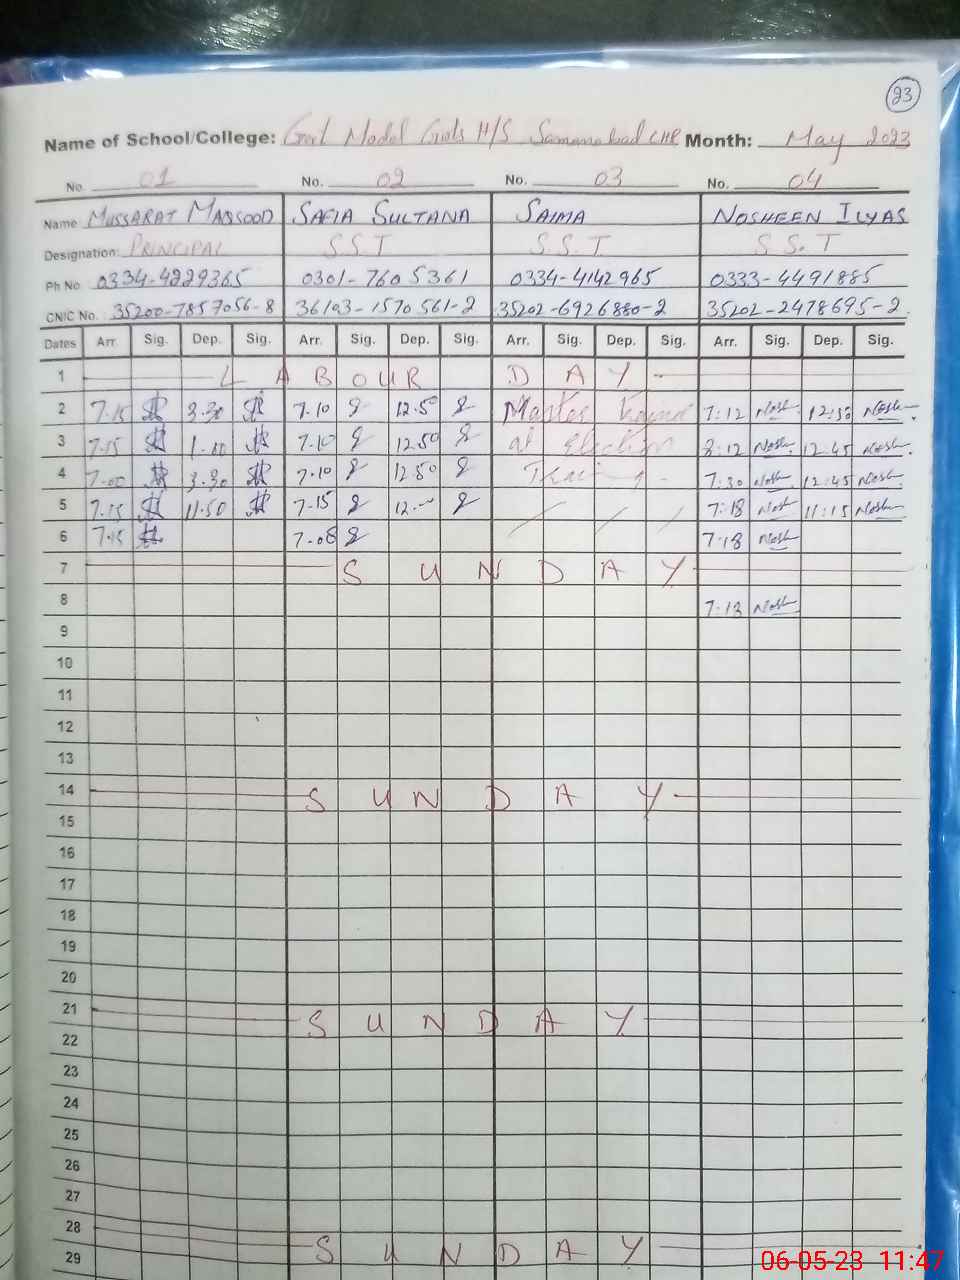 23
Name of School/College: Govt Model Girls H/S Samanabad LHR Month: May 2023
No. 01 No. 02 No. 03 No. 04
Name MUSSARAT MAQSOOD SAFIA SULTANA SAIMA NOSHEEN ILYAS
Designation: PRINCIPAL S.S.T S.S.T S.S.T
Ph No 0334-4229365 0301-7605361 0334-4142965 0333-4491885
CNIC No. 35200-7857056-8 36103-1570561-2 35202-6926880-2 35202-2478695-2
Dates Arr. Sig. Dep. Sig. Arr. Sig. Dep. Sig. Arr. Sig. Dep. Sig. Arr. Sig. Dep. Sig.
1 LABOUR DAY
2 7.15 3.30 7.10 12.50 Master 7:12 Nosh 12:30 Nosh
3 7.15 7.10 12.50 at Election 8:12 Nosh 12:45 Nosh
4 7.00 3.30 7.10 12.50 Training 7:30 Nosh 12:45 Nosh
5 7.15 11.50 7.15 12.00 7:18 Nosh 11:15 Nosh
6 7.15 7.08 7:18 Nosh
7 SUNDAY
8 7:13 Nosh
9
10
11
12
13
14 SUNDAY
15
16
17
18
19
20
21 SUNDAY
22
23
24
25
26
27
28 SUNDAY
29
06-05-23 11:47